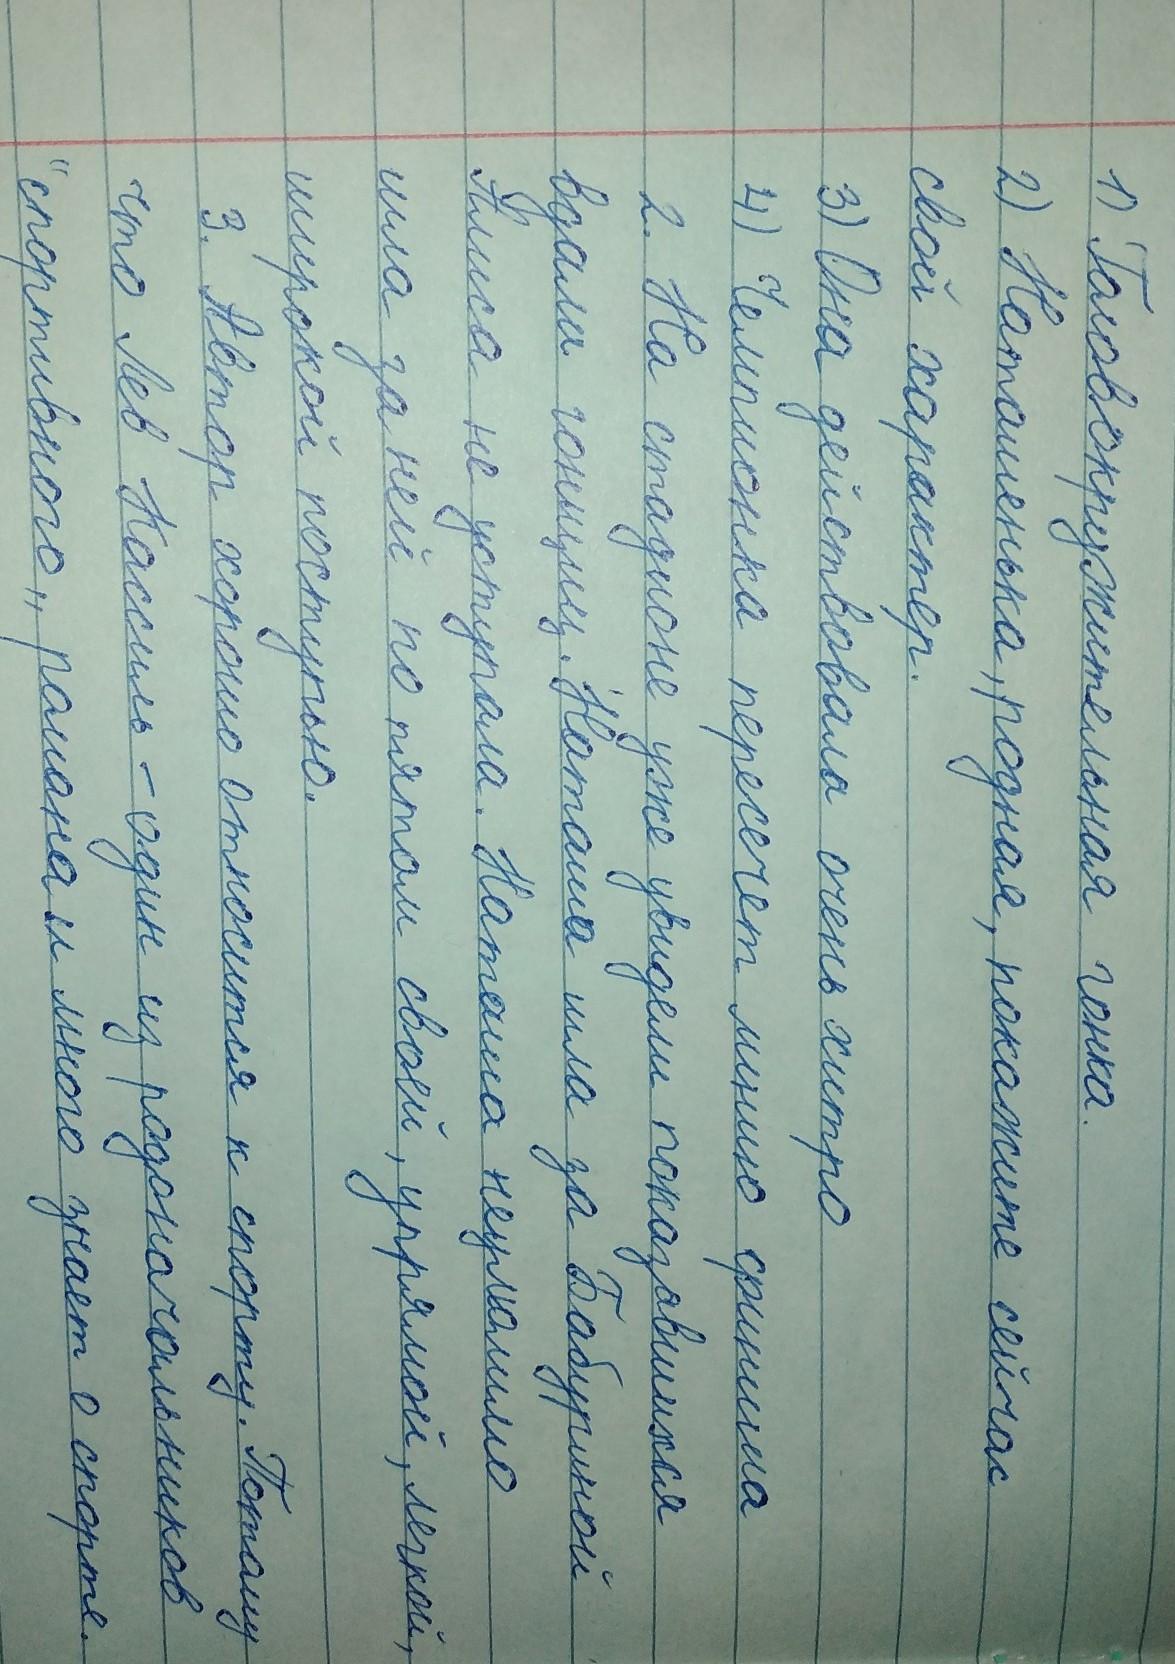 1) Головокружительная гонка.
2) Наташенька, родная, покажите сейчас
свой характер.
3) Она действовала очень хитро
4) Чемпионка пересечет линию финиша
2. На стадионе уже увидели показавшихся
вдали гонщиц. Наташа шла за Бабуриной
Алиса не уступала. Наташа неумолимо
шла за ней по пятам своей, упрямой, легкой,
широкой поступью.
3. Автор хорошо относится к спорту. Потому
что Лев Кассиль - один из родоначальников
"спортивного„ романа и много знает о спорте.